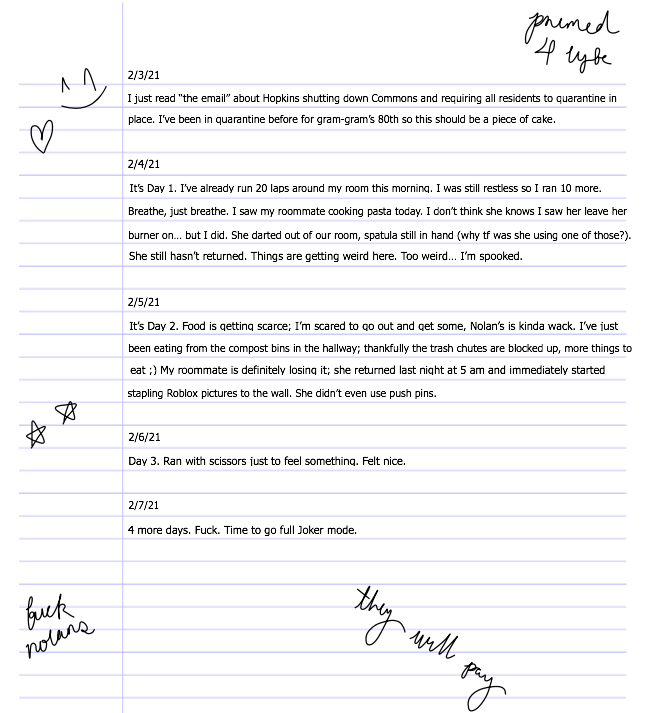 primed
4 lyfe
2/3/21
I just read “the email” about Hopkins shutting down Commons and requiring all residents to quarantine in
place. I’ve been in quarantine before for gram-gram’s 80th so this should be a piece of cake.
2/4/21
It’s Day 1. I’ve already run 20 laps around my room this morning. I was still restless so I ran 10 more.
Breathe, just breathe. I saw my roommate cooking pasta today. I don’t think she knows I saw her leave her
burner on... but I did. She darted out of our room, spatula still in hand (why tf was she using one of those?).
She still hasn’t returned. Things are getting weird here. Too weird... I’m spooked.
2/5/21
It’s Day 2. Food is getting scarce; I’m scared to go out and get some, Nolan’s is kinda wack. I’ve just
been eating from the compost bins in the hallway; thankfully the trash chutes are blocked up, more things to
eat ;) My roommate is definitely losing it; she returned last night at 5 am and immediately started
stapling Roblox pictures to the wall. She didn’t even use push pins.
2/6/21
Day 3. Ran with scissors just to feel something. Felt nice.
2/7/21
4 more days. Fuck. Time to go full Joker mode.
fuck
nolans
they will pay